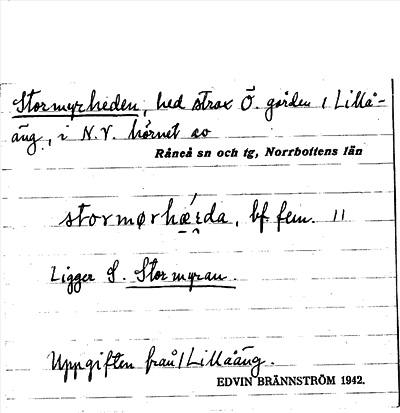 Stormyrheden, hed strax Ö. gården 1 Lillå-
äng, i N.V. hörnet av
Råneå sn och tg, Norrbottens län
stormørhǽɪda, bf fem. 11
Ligger S. Stormyran.
Uppgiften från 1 Lillåäng.
EDVIN BRÄNNSTRÖM 1942.